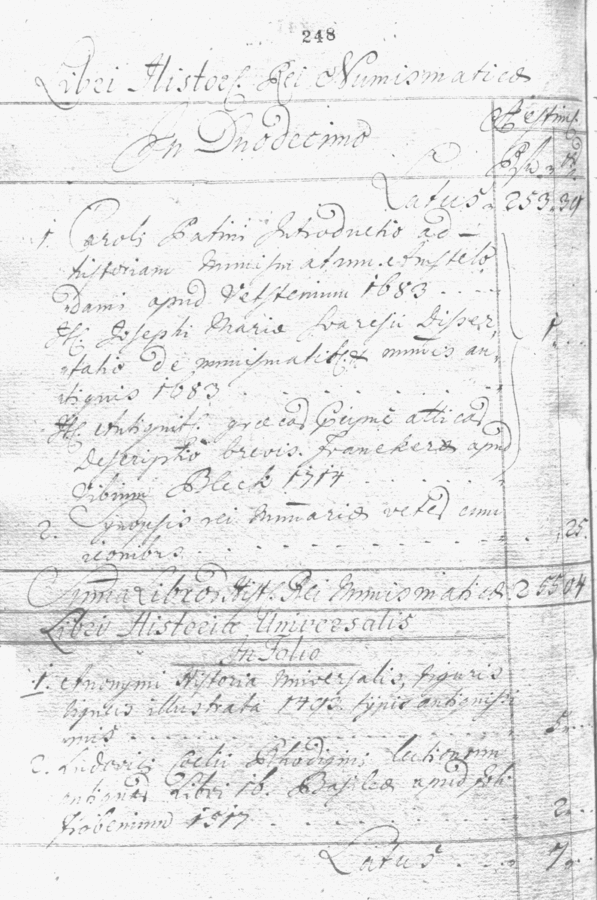 248
Libri Histor. Rei Numismaticæ
In Duodecimo
Æstim.
Latus 253. 39
1. Caroli Patini Introductio ad
historiam Numismatum. Amstelo
dami apud Vetstenium 1683
It. Josephi Mariæ Suaresii Disser
tatio de numismatib. et nummis an
tiquis 1683 1.
It. Antiquit. græcas
descriptio brevis. Franekeræ apud
Vibium Bleck 1714
2. Synopsis rei Numariæ veter. cum
iconibus 25.
Suma Libror. Hist. Rei Numismaticæ 255 04
Libri Historiæ Universalis
In Folio
1. Anonymi Historia Universalis, figuris
ligneis illustrata 1493. typis antiquissi
mis 5.
2. Ludovici Coelii Rhodigini lectionum
antiquar. Libri 16. Basileæ apud Joh.
Frobenium 1517 2.
Latus 7.